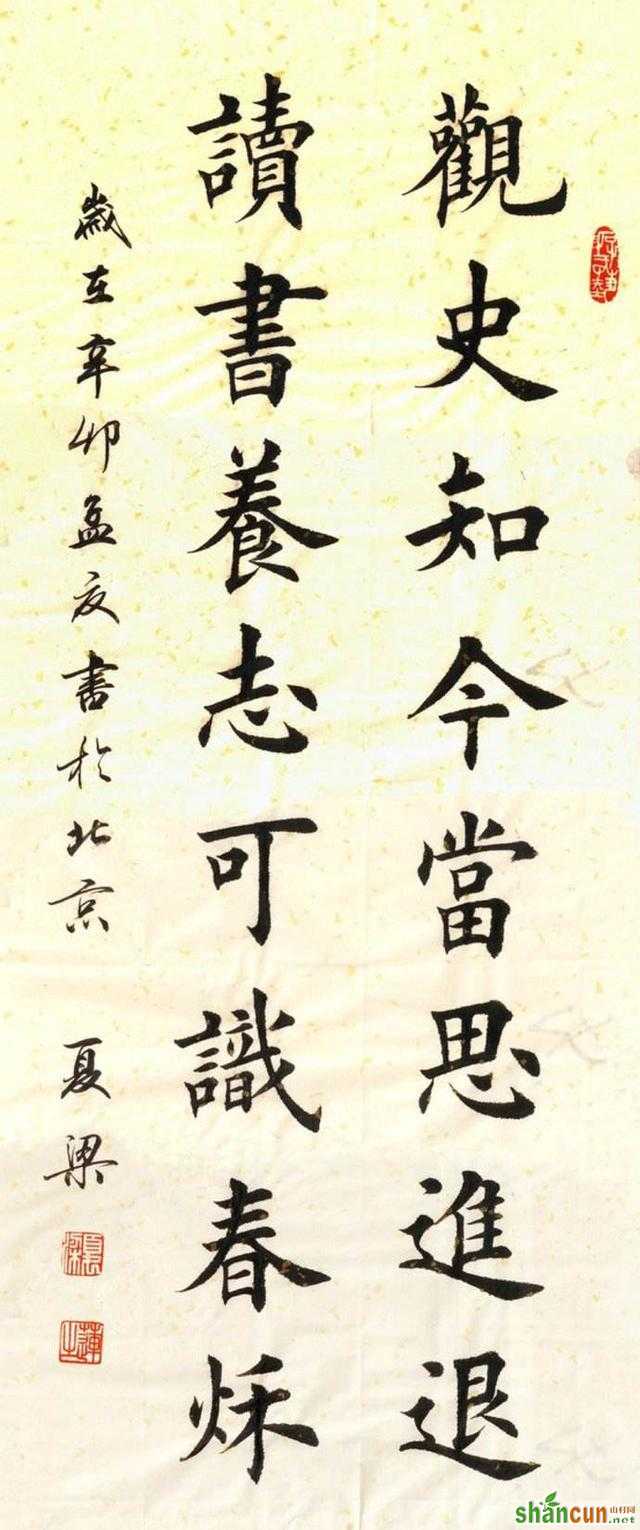 觀史知今當思進退
讀書養志可識春秌
歲在辛卯孟夏書於北京 夏梁
shancun
山村网
.net